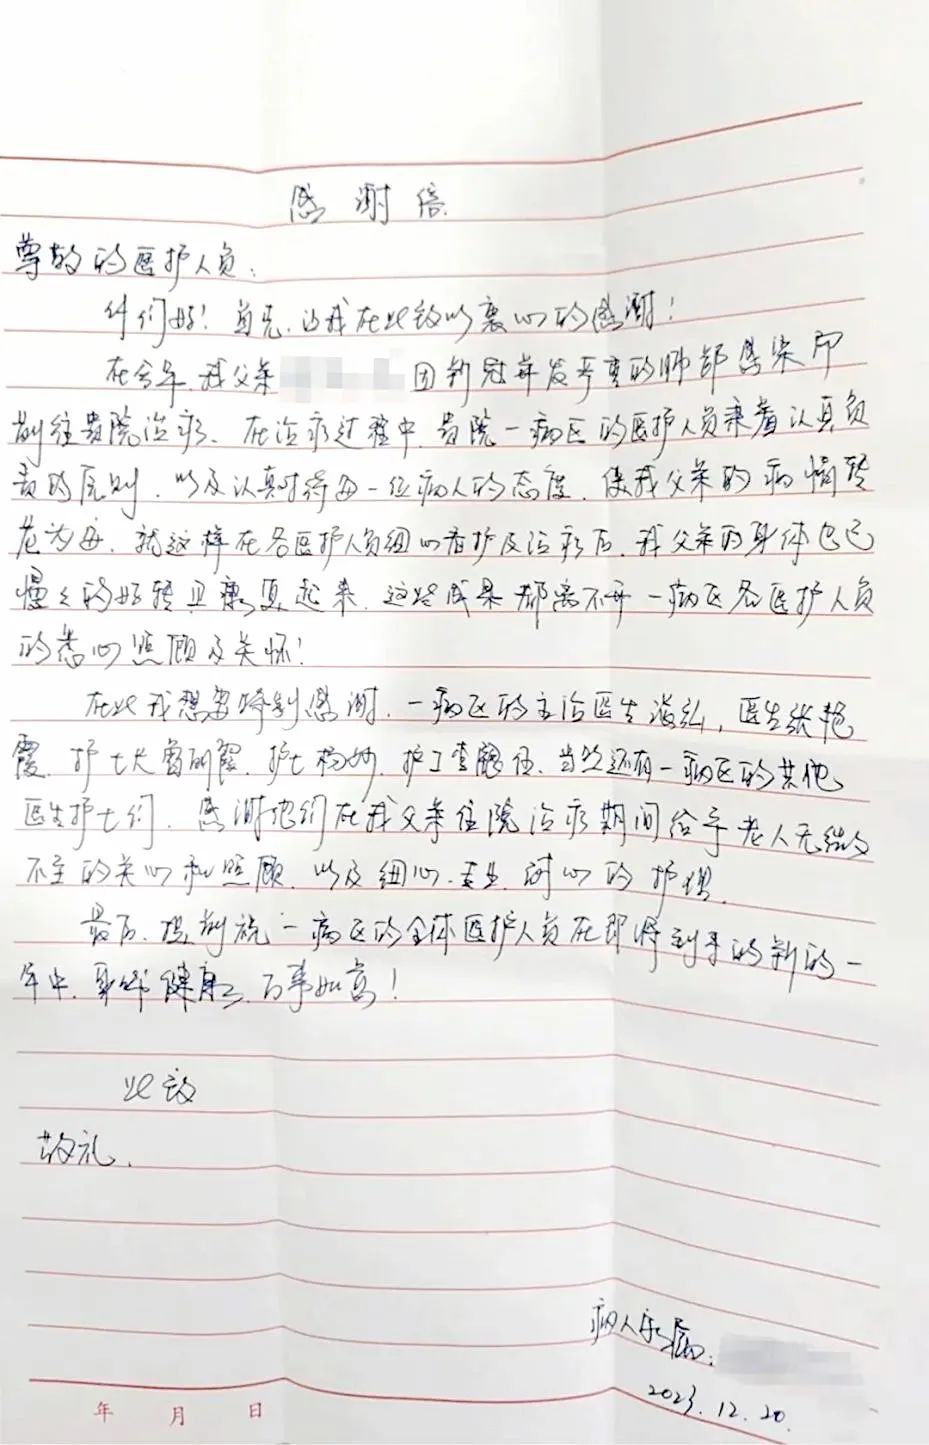 感谢信
尊敬的医护人员：
你们好！首先，让我在此致以衷心的感谢！
在今年，我父亲 因新冠并发严重的肺部感染即
前往贵院治疗、在治疗过程中，贵院一病区的医护人员秉着认真负
责的原则，以及认真对待每一位病人的态度，使我父亲的病情转
危为安，就这样在各医护人员细心看护及治疗后，我父亲的身体已
慢々的好转且康复起来，这些成果都离不开一病区各医护人员
的悉心照顾及关怀！
在此我想要特别感谢，一病区的主治医生 ，医生张艳
霞，护士长曾丽霞，护士杨 ，护工李 ，当然还有一病区的其他
医生护士们，感谢他们在我父亲住院治疗期间给予老人无微
不至的关心和照顾，以及细心、专业、耐心的护理，
最后，提前祝一病区的全体医护人员在即将到来的新的一
年中，身体健康，万事如意！
此致
敬礼，
病人家属：
2023.12.20.
年 月 日